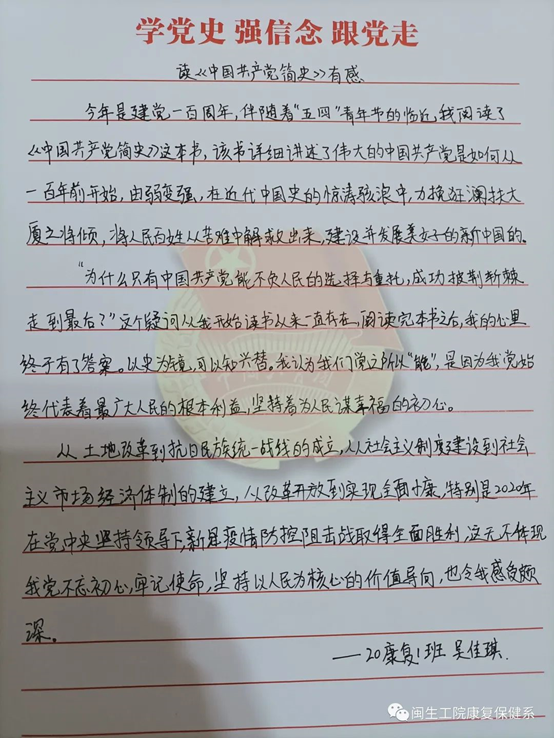 学党史 强信念 跟党走
读《中国共产党简史》有感
今年是建党一百周年，伴随着“五四”青年节的临近，我阅读了
《中国共产党简史》这本书，该书详细讲述了伟大的中国共产党是如何从
一百年前开始，由弱变强，在近代中国史的惊涛骇浪中，力挽狂澜扶大
厦之将倾，将人民百姓从苦难中解救出来，建设并发展美好的新中国的。
“为什么只有中国共产党能不负人民的选择与重托，成功披荆斩棘
走到最后？”这个疑问从我开始读书以来一直存在，阅读完本书之后，我的心里
终于有了答案。以史为镜，可以知兴替。我认为我们党之所以“能”，是因为我党始
终代表着最广大人民的根本利益，坚持着为人民谋幸福的初心。
从土地改革到抗日民族统一战线的成立，从社会主义制度建设到社会
主义市场经济体制的建立，从改革开放到实现全面小康，特别是2020年
在党中央坚持领导下，新冠疫情防控阻击战取得全面胜利，这无不体现
我党不忘初心，牢记使命，坚持以人民为核心的价值导向，也令我感受颇
深。
——20康复1班 吴佳琪.
闽生工院康复保健系